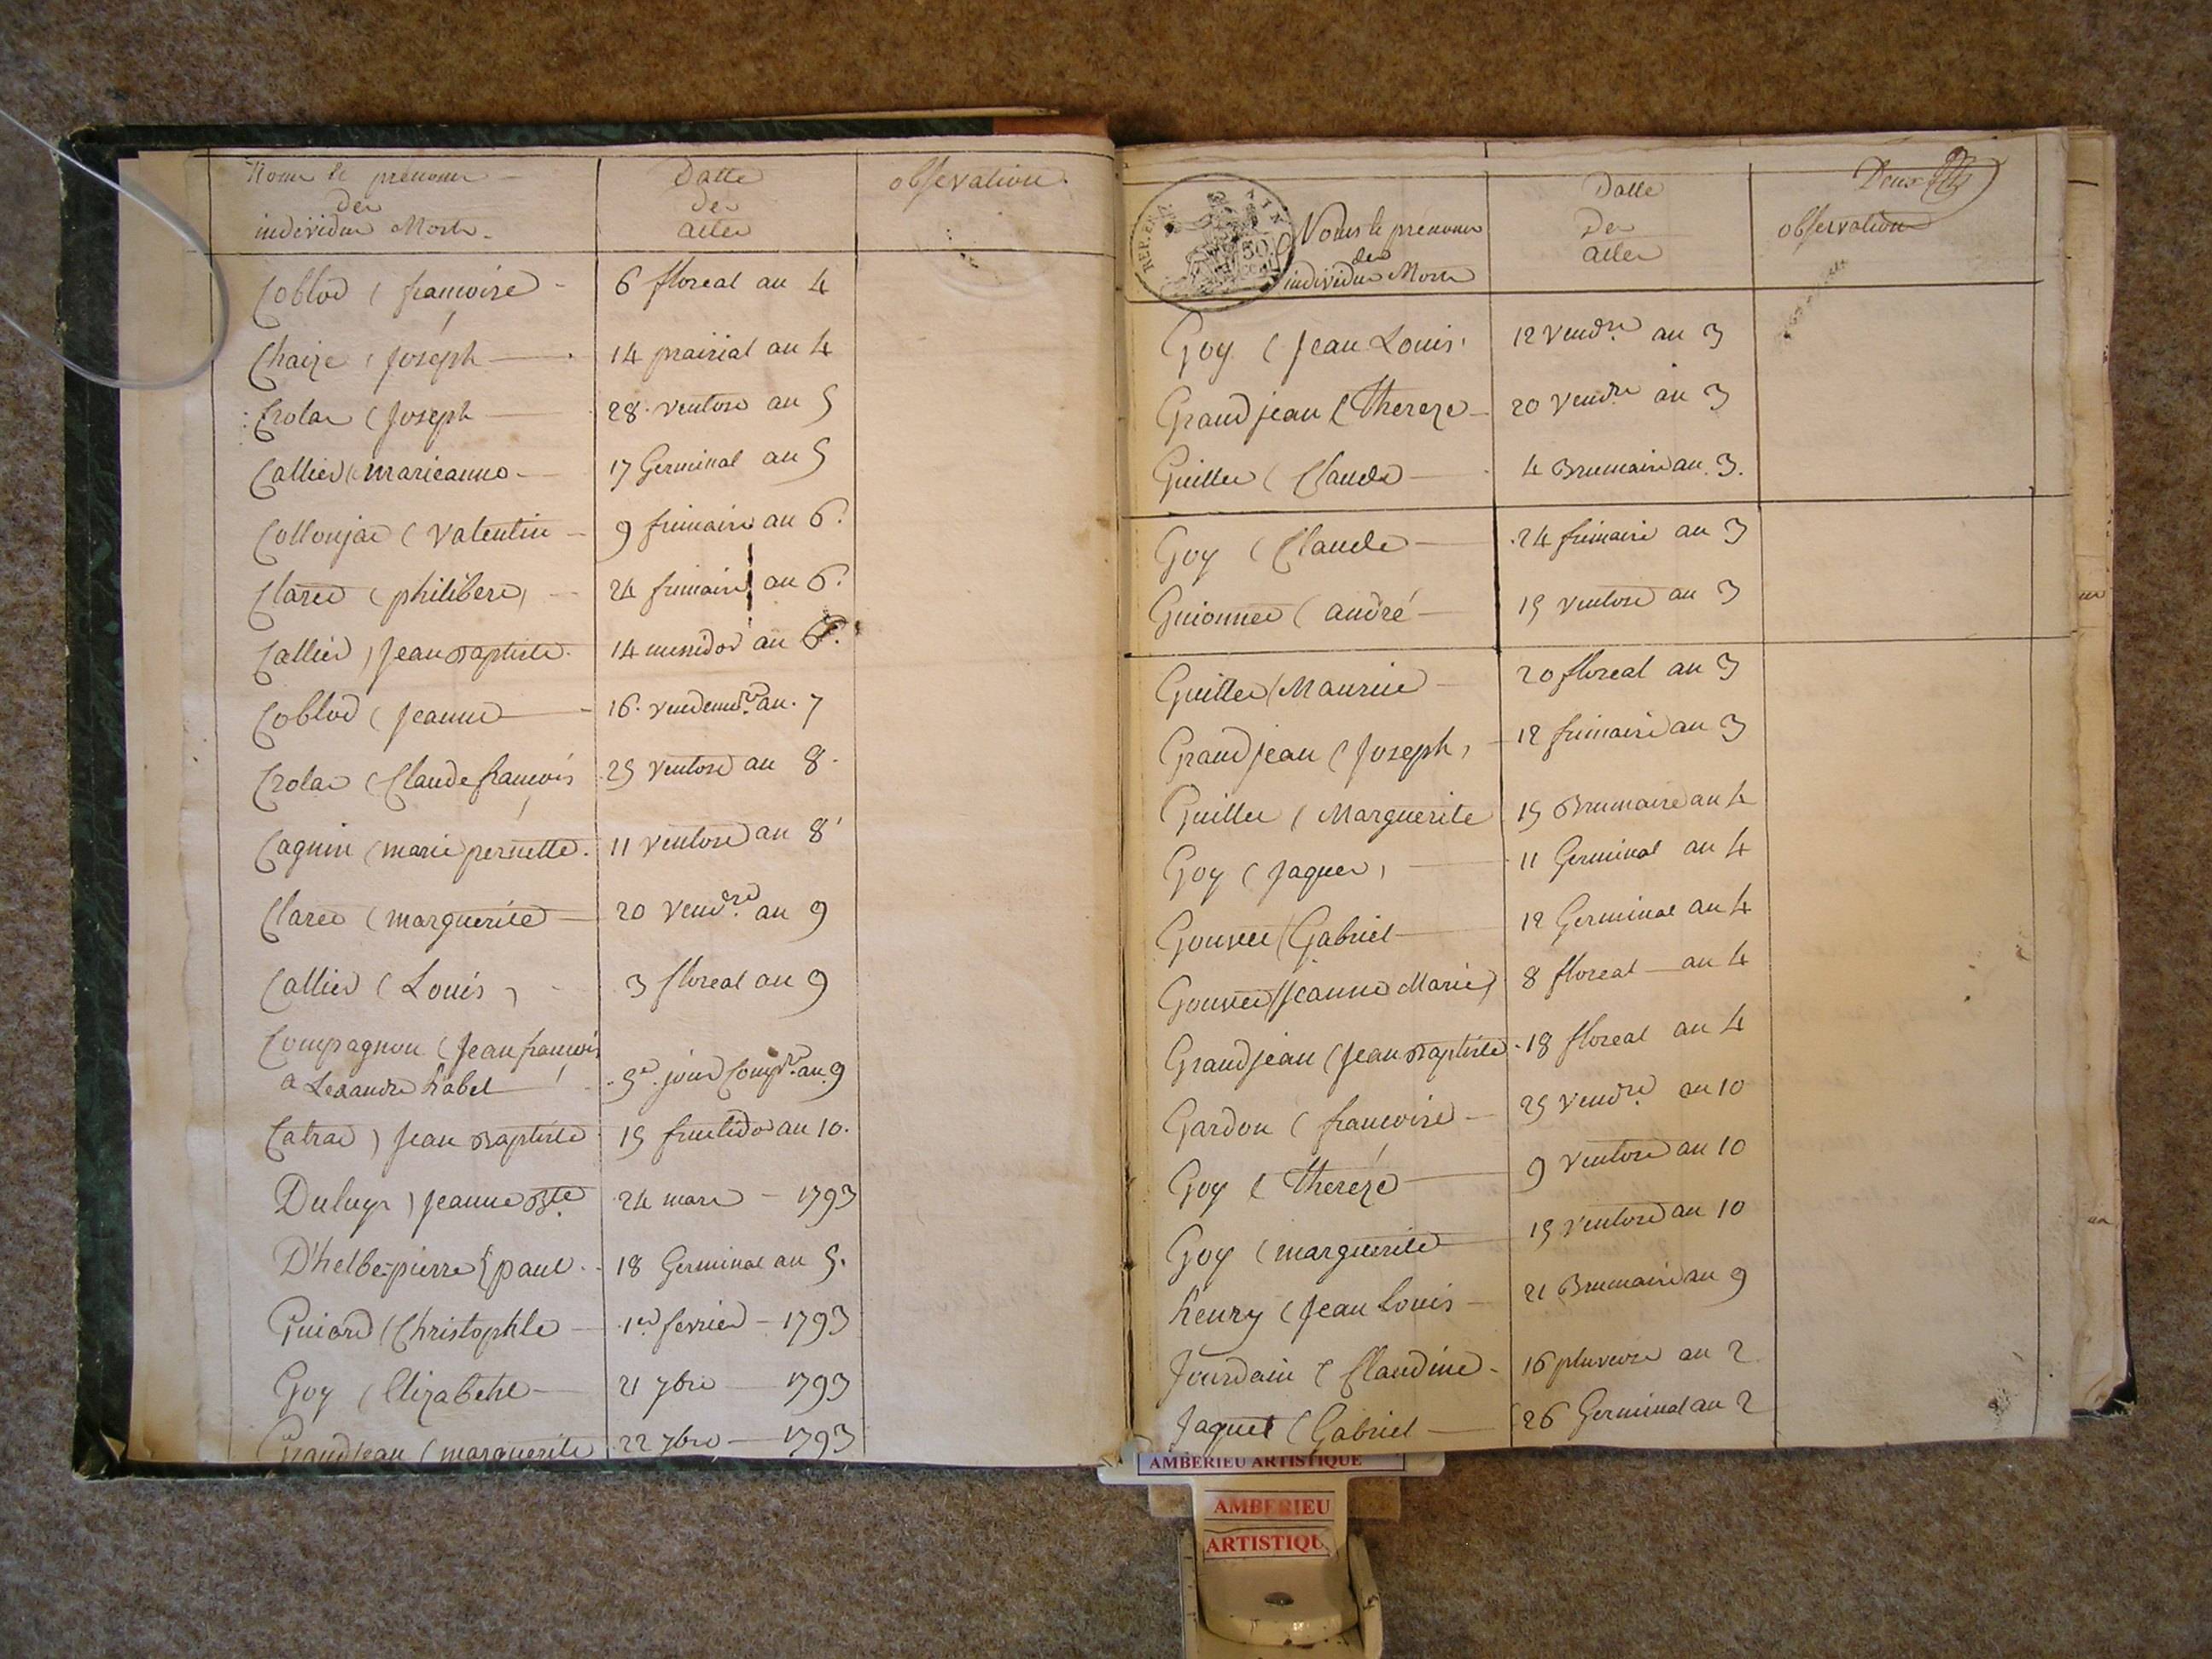 Noms & prenoms
des
individus Morts
Datte
des
actes
observations
Coblod ( françoise 6 floreal an 4
Chaize ( Joseph 14 prairial an 4
Crolas ( Joseph 28 ventose an 5
Callied ( marieanne 17 Germinal an 5
Collonjac ( Valentin 9 frimaire an 6
Claret ( philibert 24 frimaire an 6
Callied ) Jean Baptiste 14 messidor an 6
Coblod ( Jeanne 16 vendemre an 7
Crolas ( Claude françois 25 ventose an 8
Cagnin ( marie pernette 11 ventose an 8
Claret ( marguerite 20 vendre an 9
Callied ( Louis 3 floreal an 9
Compagnon ( Jean françois
alexandre habel 5e jour Compre an 9
Catrad ) Jean Baptiste 15 fructidor an 10
Duluys ) Jeanne Bte 24 mars 1793
D'helbe-pierre ( paul 18 Germinal an 5
Guiard ( Christophle 1er fevrier 1793
Goy ( Elizabeth 21 7bre 1793
Grandjean ( marguerite 22 7bre 1793
REP. FRA.
50
Noms & prenoms
des
individus Morts
Datte
Des
actes
Deux
observations
Goy ( Jean Louis 12 Vendre an 3
Grandjean ( Thereze 20 Vendre an 3
Guillet ( Claude 4 Brumaire an 3.
Goy ( Claude 24 frimaire an 3
Guionnet ( andré 15 ventose an 3
Guillet ( Maurice 20 floreal an 3
Grandjean ( Joseph 12 frimaire an 3
Guillet ( Marguerite 15 Brumaire an 4
Goy ( Jaques 11 Germinal an 4
Gouvet ( Gabriel 12 Germinal an 4
Gouvet ( Jeanne Marie ) 8 floreal an 4
Grandjean ( Jean Baptiste 18 floreal an 4
Gardon ( francoise 25 Vendre an 10
Goy ( thereze 9 ventose an 10
Goy ( marguerite 15 ventose an 10
henry ( Jean Louis 21 Brumaire an 9
Jourdain ( Claudine 16 pluviose an 2
Jaquet ( Gabriel 26 Germinal an 2
AMBERIEU ARTISTIQUE
AMBERIEU
ARTISTIQU